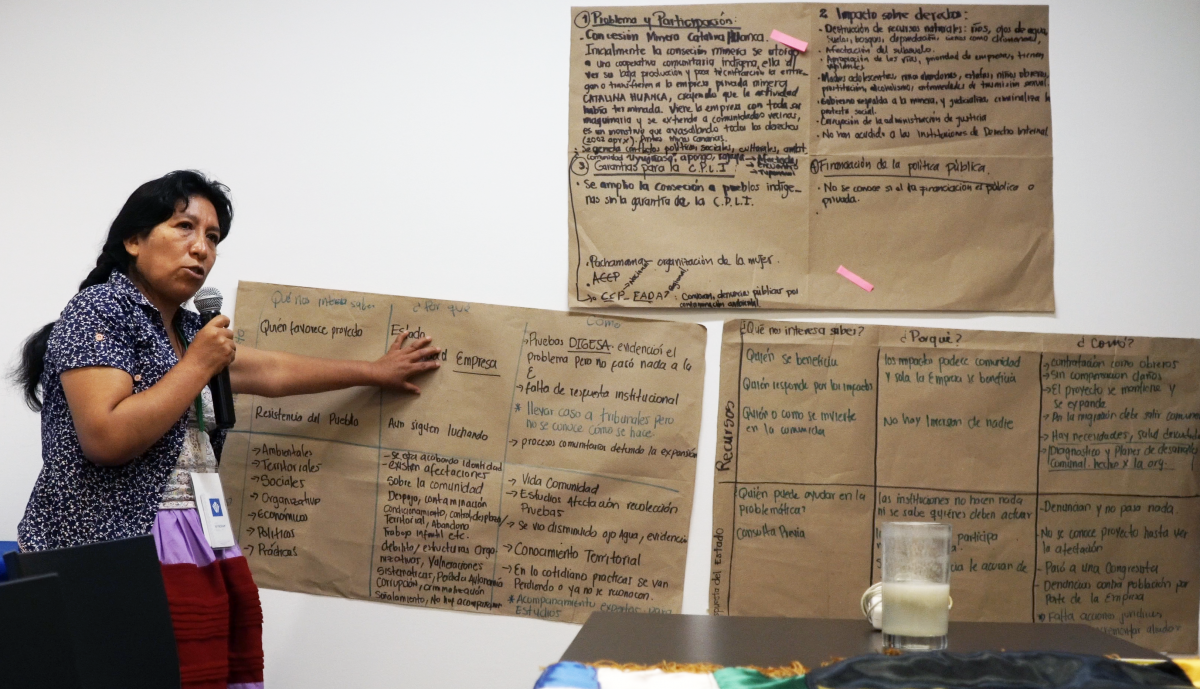 ① Problema y Participación:
• Concesión Minera Catalina Huanca.
Inicialmente la conseción minera se otorgó
a una cooperativa comunitaria indígena, ella al
ver su baja producción y para tecnificación la entre-
gan o transfieren a la empresa privada minera
CATALINA HUANCA, creyendo que la actividad
había terminado. Viene la empresa con toda su
maquinaria y se extiende a comunidades vecinas,
es un monstruo que avasallando todos los derechos
(2002 aprx). Antes Minas Canarias.
• Se genera conflictos políticos, sociales, culturales, ambt.
(comunidad
③ Garantías para la C.P.L.I
• Se amplio la conseción a pueblos indige-
nas sin la garantía de la C.P.L.I.
• Pachamama - organización de la mujer.
• ACCP
CCP_FADA?
denuncia públicas por
contaminación ambiental
2. Impacto sobre derechos:
• Destrucción de recursos naturales: ríos, ojos de agua,
suelos, bosques,
• Afectación del subsuelo.
• Apropiación de las vías, propiedad de empresas, tienen
vigilantes
• Madres adolescentes,
prostitución, alcoholismo, enfermedades de trasmisión sexual.
• Gobierno respalda a la minera, y judicializa, criminaliza la
protesta social.
• Corrupción de la administración de justicia
• No han acudido a las Instituciones de Derecho Internal
Financiación de la política pública.
• No se conoce si al la financiación es pública o
privada.
Qué nos interesa saber
¿Por qué
Como
Quién favorece proyecto
Estado
Empresa
→ Pruebas DIGESA: evidenció el
problema pero no pasó nada a la
E
→ falta de respuesta institucional
* llevar caso a tribunales pero
no se conoce cómo se hace
→ procesos comunitarios detuvo la expansión
Resistencia del Pueblo
Aun siguen luchando
→ Ambientales
→ Territoriales
→ Sociales
→ Organizativo
→ Económicos
→ Políticas
→ Prácticas
existen afectaciones
sobre la comunidad
Despojo, contaminación
Territorial, Abandono
Trabajo Infantil etc.
debilita/estructuras Orga
nizativas, Vulneraciones
Sistemáticas,
Corrupción, criminalización
Señalamiento, No hay acompañam
→ Vida Comunidad
→ Estudios Afectación recolección
Pruebas
→ Se vio disminuido ojo Agua, evidencia
→ Conocimiento Territorial
→ En lo cotidiano practicas se van
Perdiendo o ya no se reconocen.
* Acompañamiento expertos para
Estudios
¿Qué nos interesa saber?
¿Porqué?
¿Cómo?
Recursos
Quién se beneficia
Quién responde por los impactos
Quién o como se invierte
en la comunidad
los impacto padece comunidad
y sola la Empresa se beneficia
No hay Inversion de nadie
→ Contratación como obreros
→ Sin Compensación daños
→ El proyecto se mantiene y
se expande
→ Hay necesidades, salud
→ Diagnostico y Planes de desarrollo
Comunal hecho x la org.
Quién puede ayudar en la
problemática?
Consulta Previa
las instituciones no hacen nada
ni se sabe quiénes deben actuar
participa
- Denuncian y no pasa nada
- No se conoce proyecto hasta ver
la afectación
- Pasó a una Congresista
- Denuncian contra población por
Parte de la Empresa
* Falta acciones jurídicas